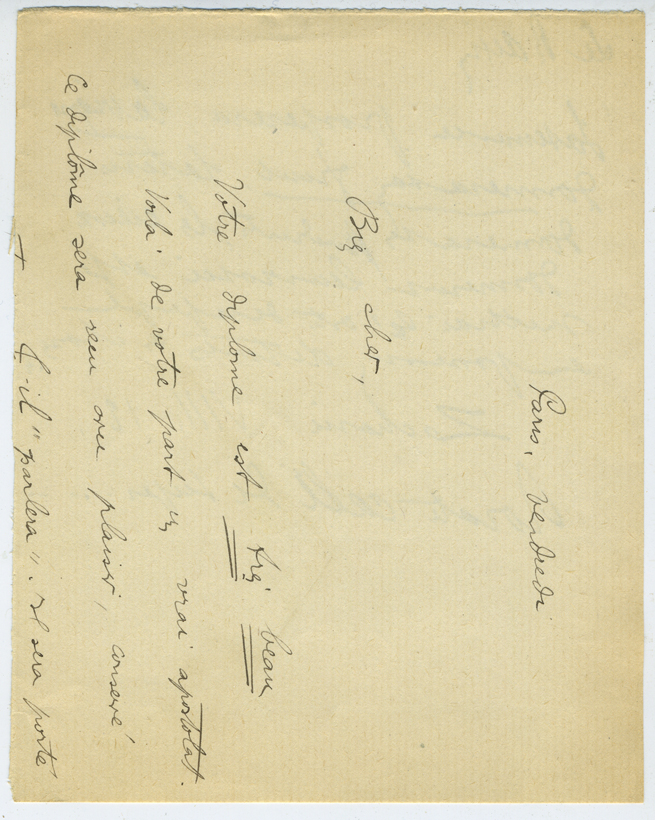 Paris, vendredi
Bien cher,
Votre diplome est très beau
Voilà de votre part un vrai apostolat.
Ce diplôme sera reçu avec plaisir, conservé
+ il "parlera". Il sera porté